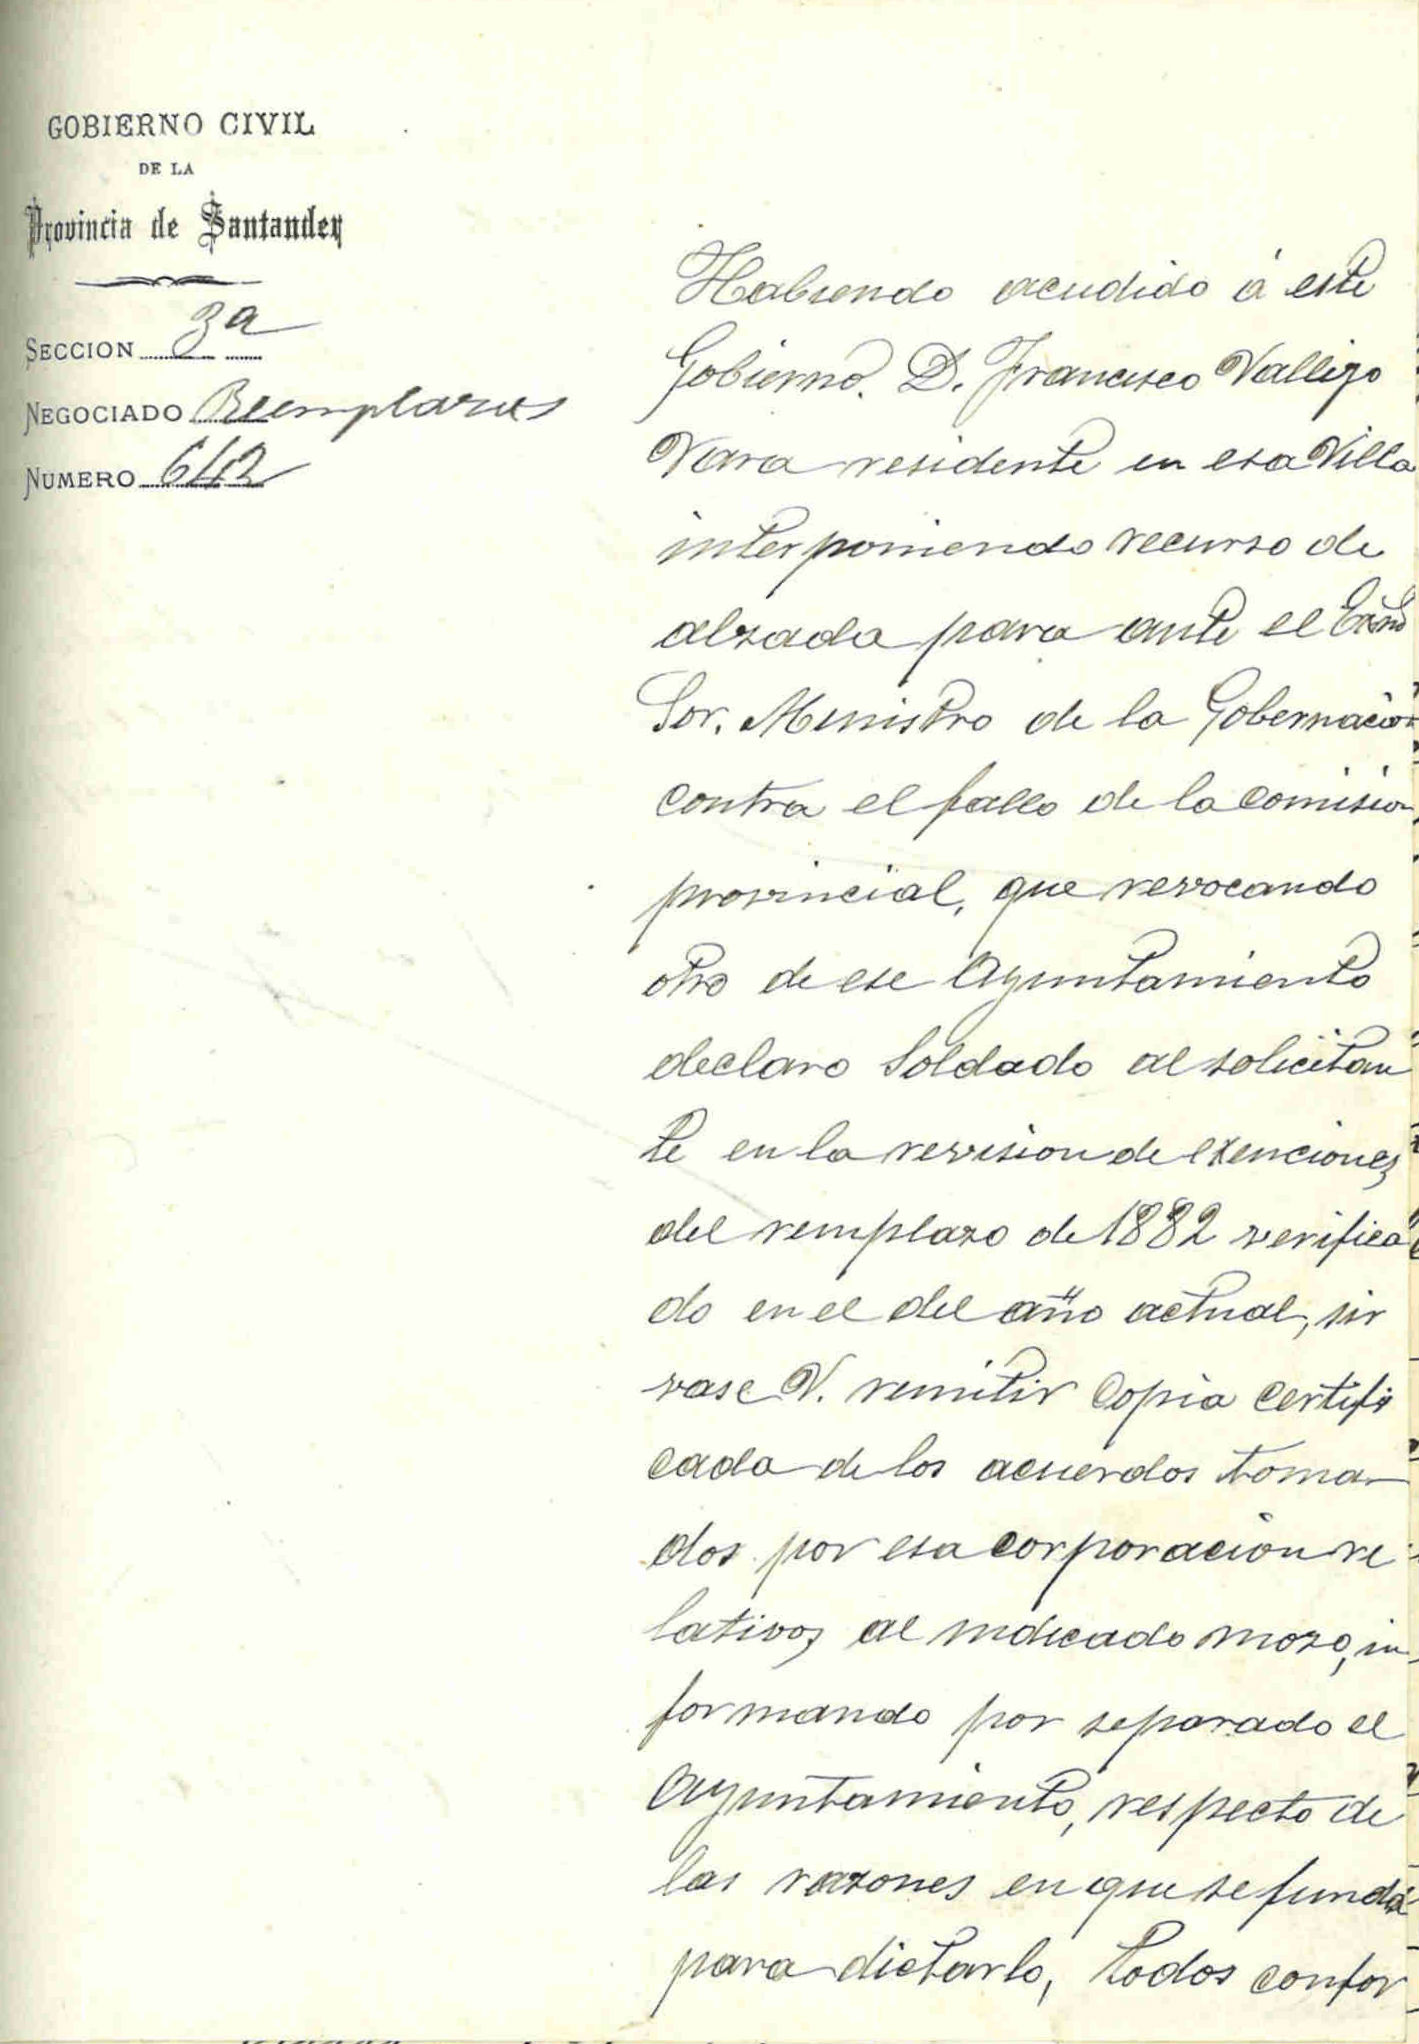 GOBIERNO CIVIL
DE LA
Provincia de Santander
SECCION 3ª
NEGOCIADO Reemplazos
NUMERO 642
Habiendo acudido á este
Gobierno. D. Francisco Vallejo
Vara residente en esa Villa
interponiendo recurso de
alzada para ante el Exmo
Sor. Ministro de la Gobernacion
contra el fallo de la comision
provincial, que revocando
otro de ese Ayuntamiento
declaro Soldado al solicitan
te en la revision de exenciones
del remplazo de 1882 verifica
do en el del año actual, sir
vase V. remitir Copia certifi
cada de los acuerdos toma-
dos por esa corporacion re
lativos al indicado mozo, in
formando por separado el
Ayuntamiento, respecto de
las razones en que se funda
para dictarlo, todos confor